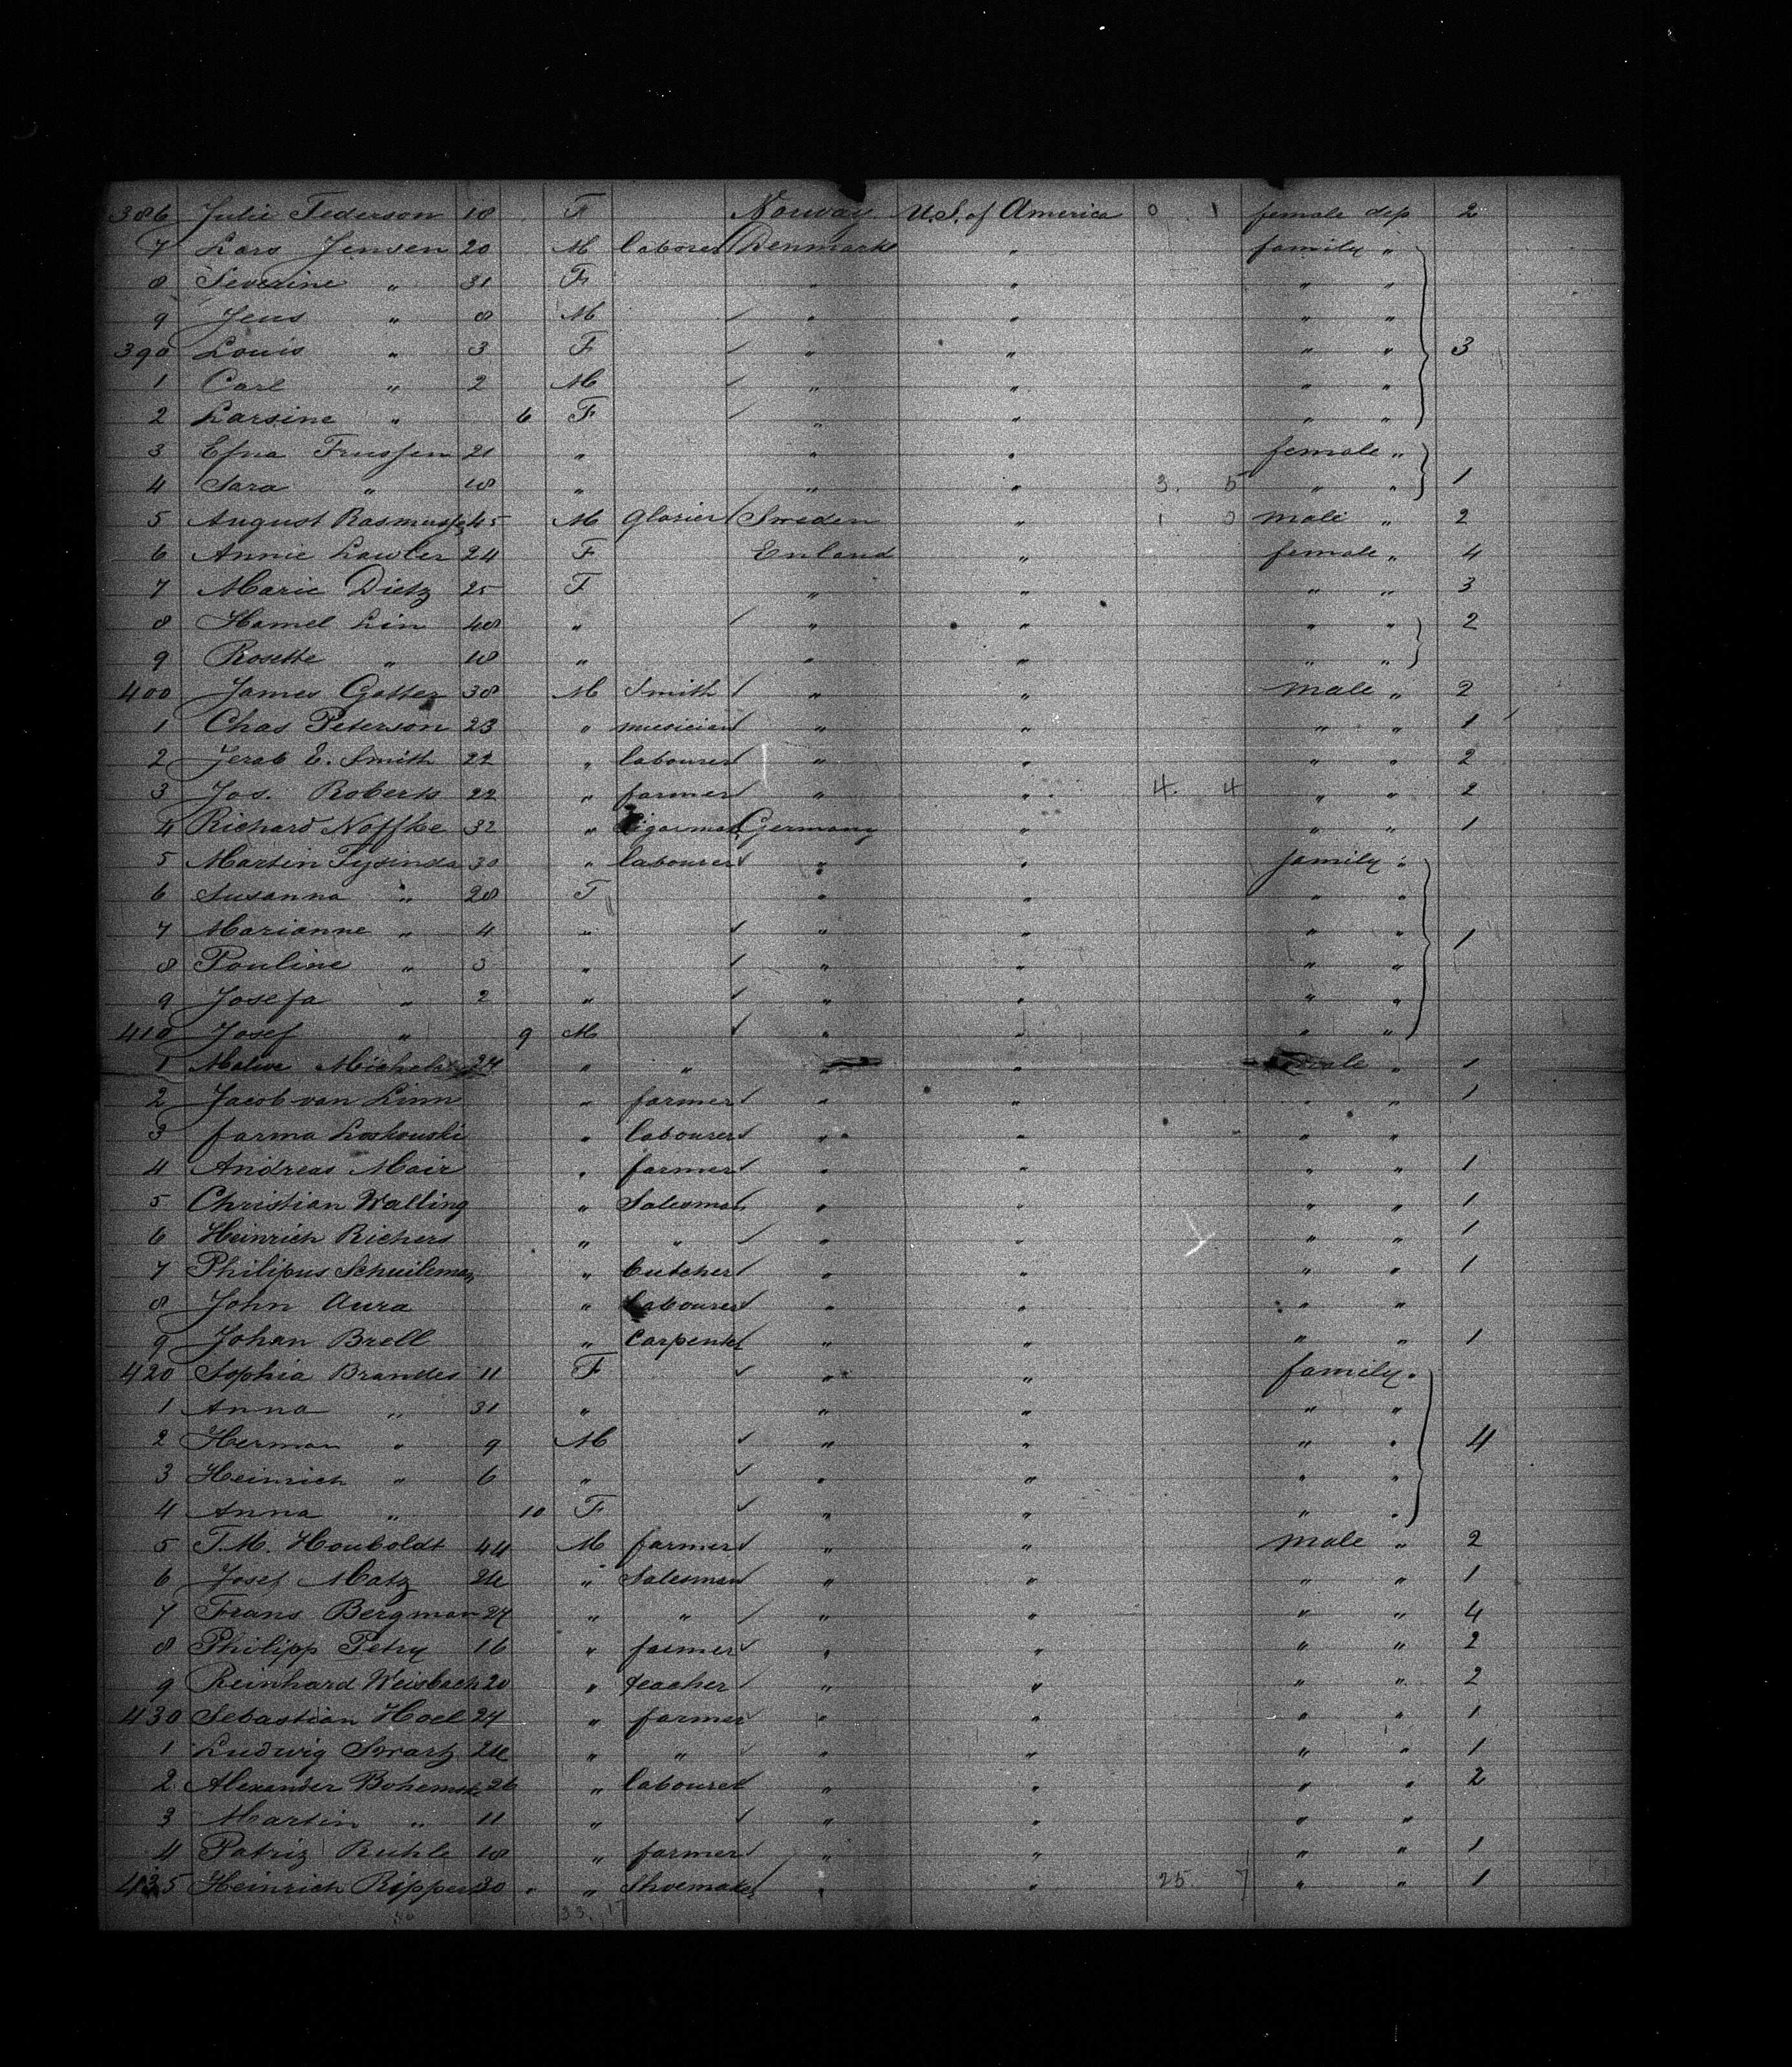 386 Julie Federson 18 F Norway U.S. of America 0 1 female dep 2
7 Lars Jensen 20 M laborer Denmark " family "
8 Severine " 31 F " " " "
9 Jens " 8 M " " " "
390 Louis " 3 F " " " " 3
1 Carl " 2 M " " " "
2 Larsine " 6 F " " " "
3 21 " " " female "
4 Sara " 18 " " " 3. 5 " " 1
5 August 45 M Glasier Sweden " 1 0 male " 2
6 Annie Lawler 24 F Enland " female " 4
7 Marie Dietz 25 F " " " " 3
8 Hamel Lin 48 " " " " " 2
9 Rosette " 18 " " " " "
400 James 38 M Smith " " male " 2
1 Chas Peterson 23 " musician " " " " 1
2 E. Smith 22 " labourer " " " " 2
3 Jos. Roberts 22 " farmer " " 4. 4 " " 2
4 Richard Noffke 32 " Germany " " " 1
5 Martin 30 " labourer " " family "
6 Susanna " 28 F " " " "
7 Marianne " 4 " " " " " 1
8 Pauline " 3 " " " " "
9 Josefa " 2 " " " " "
410 Josef " 9 M " " " "
1 " " " " " 1
2 Jacob van Linn " farmer " " " " 1
3 " labourer " " " "
4 Andreas Mair " farmer " " " " 1
5 Christian Walling " Salesman " " " " 1
6 Heinrich Richers " " " " " " 1
7 Philipus Schuileman " butcher " " " " 1
8 John Aura " labourer " " " "
9 Johan Brell " Carpenter " " " " 1
420 Sophia Brandes 11 F " " family "
1 Anna " 31 " " " " "
2 Herman " 9 M " " " " 4
3 Heinrich " 6 " " " " "
4 Anna " 10 F " " " "
5 T.M. Houboldt 44 M farmer " " male " 2
6 Josef Matz " Salesman " " " " 1
7 Frans Bergman 27 " " " " " " 4
8 Philipp Petry 16 " farmer " " " " 2
9 Reinhard Weisbach 20 " teacher " " " " 2
430 Sebastian Hoel 24 " farmer " " " " 1
1 Ludwig Swartz " " " " " " 1
2 Alexander 26 " labourer " " " " 2
3 Martin " 11 " " " " "
4 Patriz Ruhle 18 " farmer " " " " 1
435 Heinrich Ripper 30 " " Shoemaker " " 25. 7 " " 1